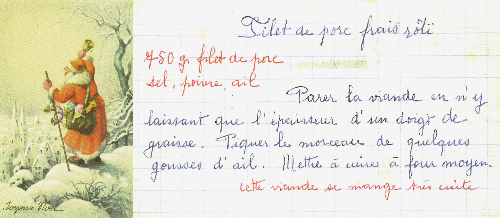 Filet de porc frais rôti
750 gr filet de porc
sel, poivre, ail
Parer la viande en n'y
laissant que l'épaisseur d'un doigt de
graisse. Piquer le morceau de quelques
gousses d'ail. Mettre à cuire à four moyen
cette viande se mange très cuite
Joyeux Noël